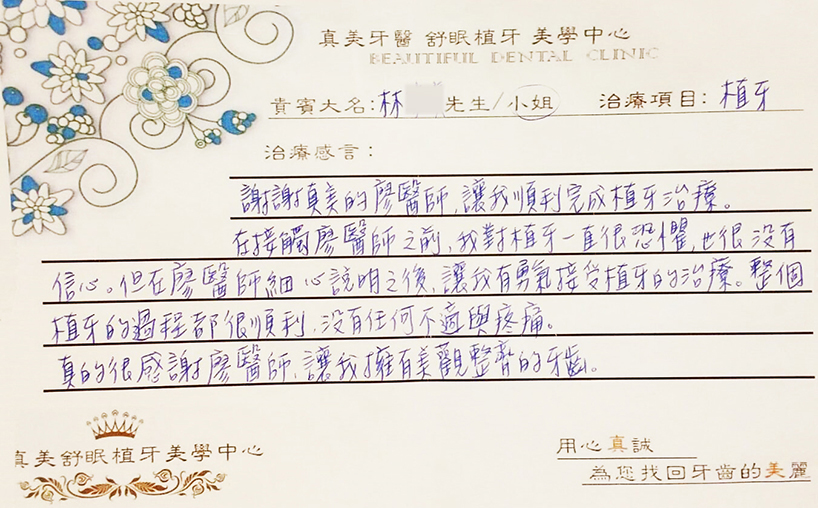 真美牙醫 舒眠植牙 美學中心
BEAUTIFUL DENTAL CLINIC
貴賓大名:林 先生/小姐 治療項目:植牙
治療感言:
謝謝真美的廖醫師,讓我順利完成植牙治療。
在接觸廖醫師之前,我對植牙一直很恐懼,也很沒有
信心。但在廖醫師細心說明之後,讓我有勇氣接受植牙的治療。整個
植牙的過程都很順利,沒有任何不適與疼痛。
真的很感謝廖醫師,讓我擁有美觀整齊的牙齒。
真美舒眠植牙美學中心
用心真誠
為您找回牙齒的美麗